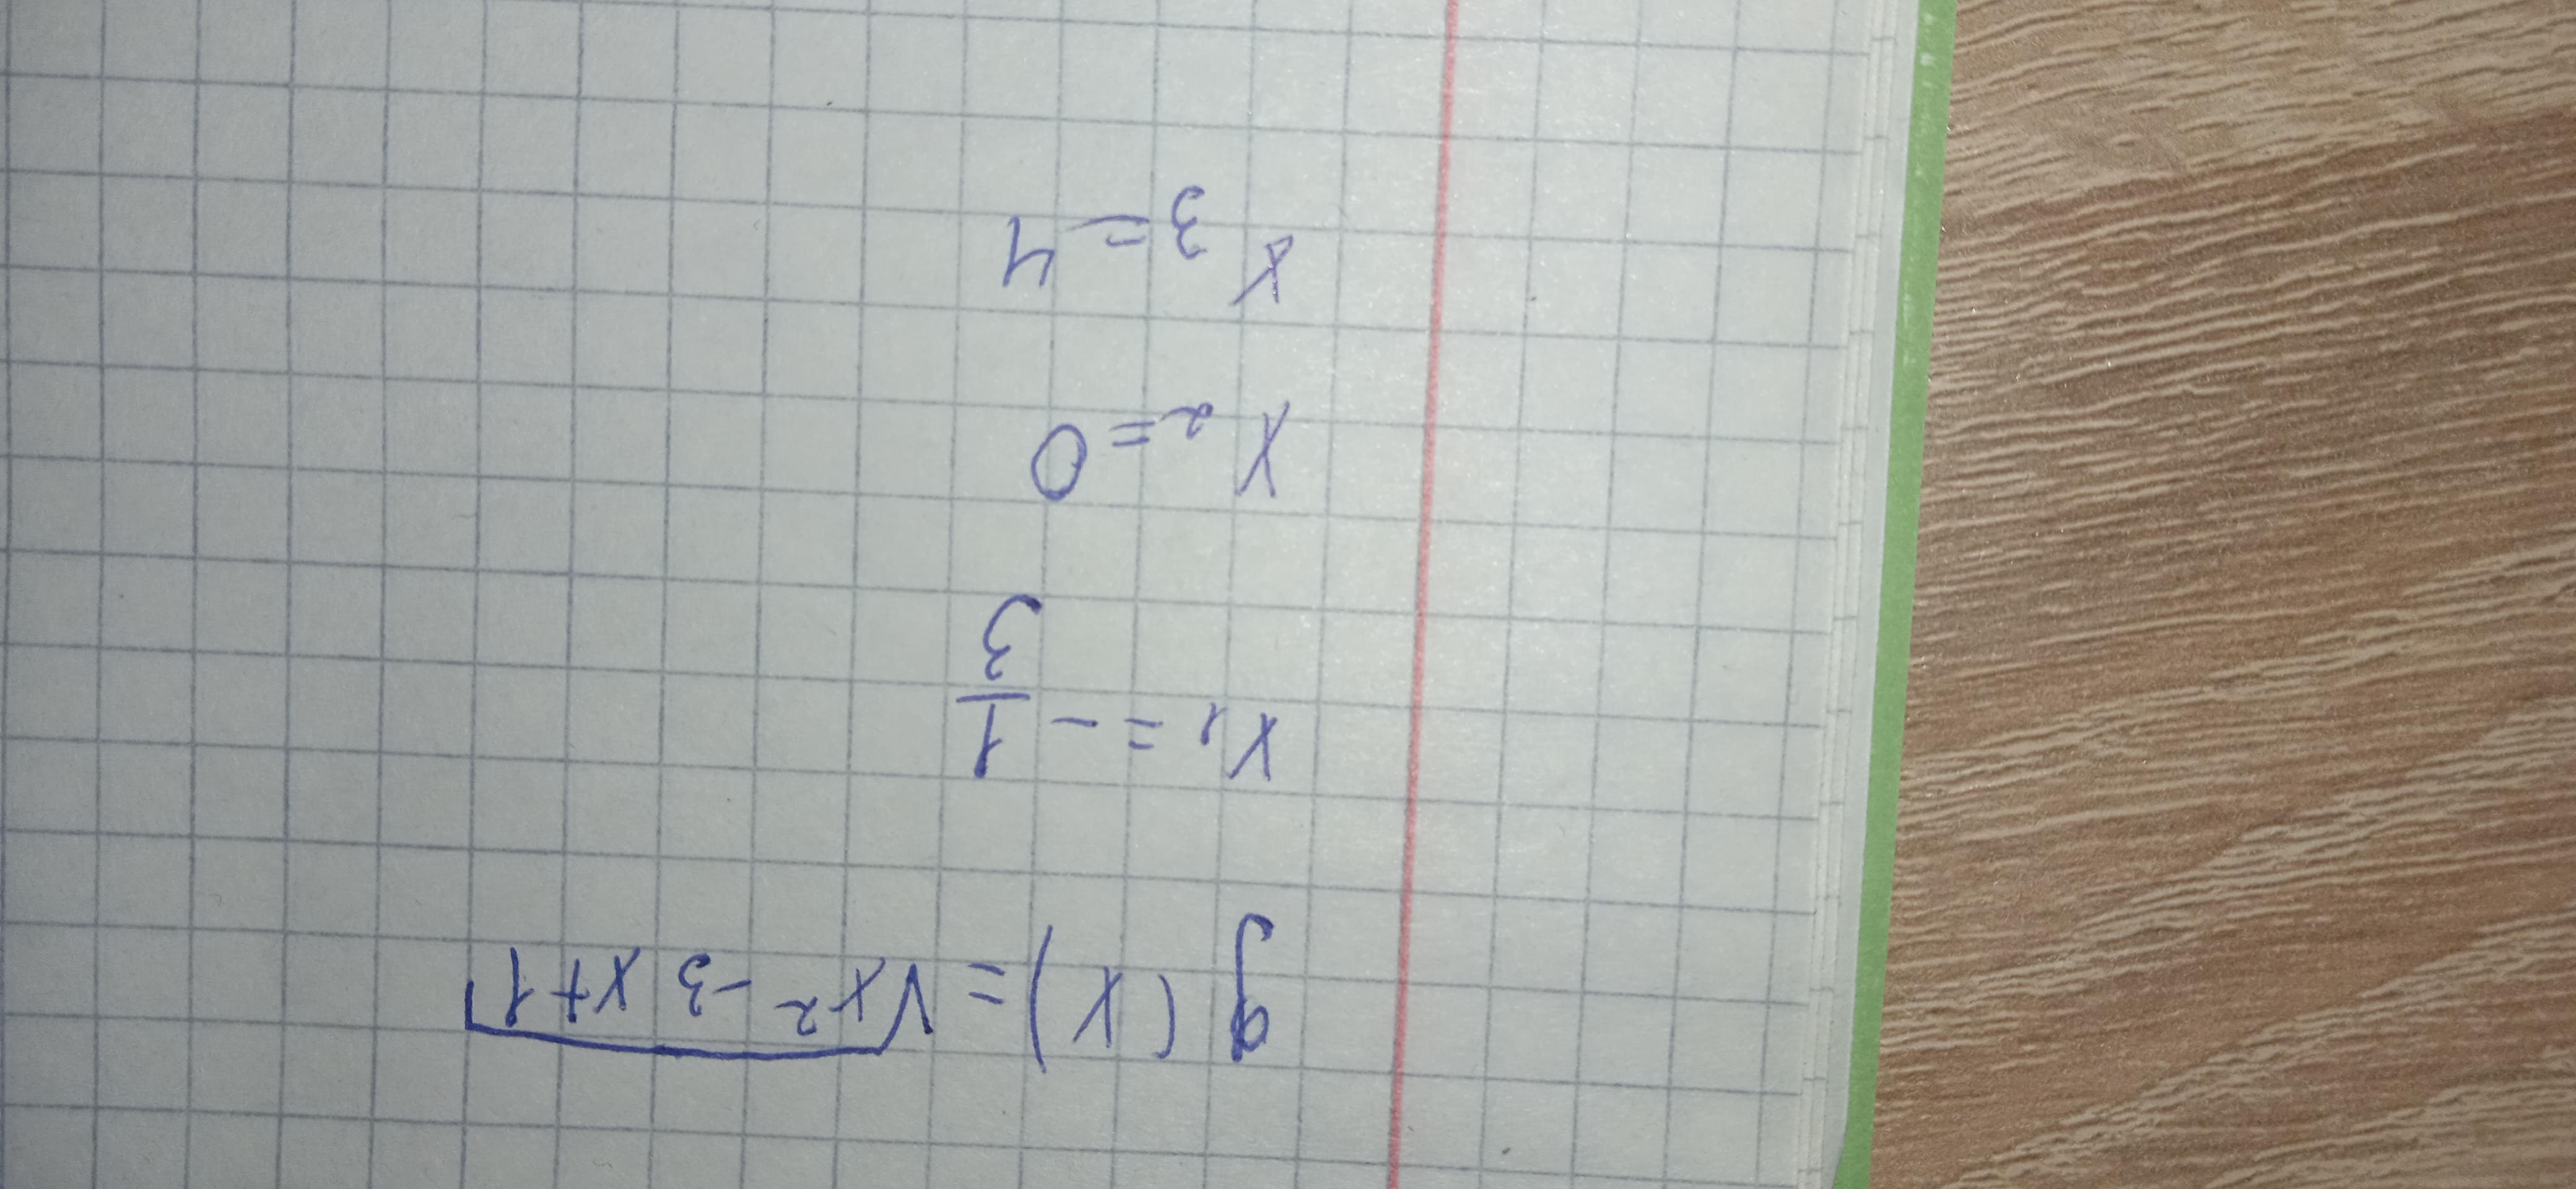 g(x) = √x² - 3x + 1
x₁ = - 1/3
x₂ = 0
x₃ = 4